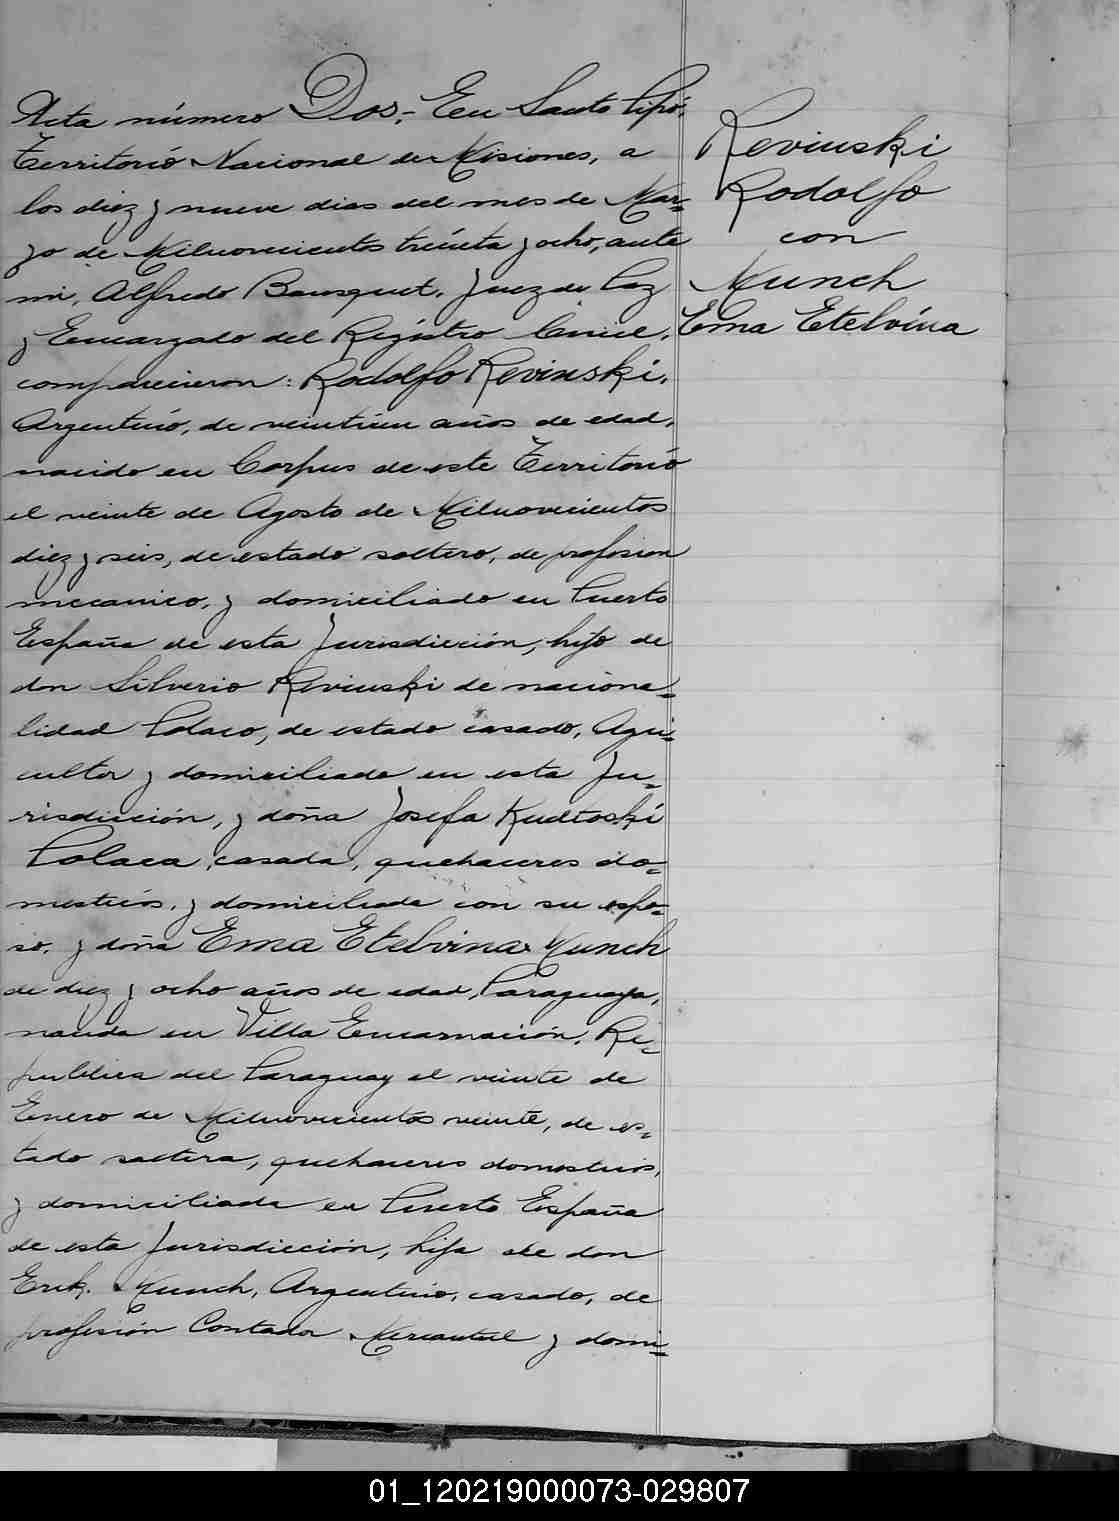 Acta número Dos.- En Santo Pipó,
Territorio Nacional de Misiones, a
los diez y nueve dias del mes de Mar=
zo de Milnovecientos treinta y ocho, ante
mi, Alfredo Bousquet, Juez de Paz
y Encargado del Registro Civil,
comparecieron: Rodolfo Revinski,
Argentino, de veintiun años de edad,
nacido en Corpus de este Territorio
el veinte de Agosto de Milnovecientos
diez y seis, de estado soltero, de profesion
mecanico, y domiciliado en Puerto
España de esta Jurisdicción, hijo de
don Silverio Reviuski de naciona=
lidad Polaco, de estado casado, Agri=
cultor y domiciliado en esta Ju=
risdicción, y doña Josefa Kudtoski
Polaca, casada, quehaceres do=
mesticos, y domiciliada con su espo=
so, y doña Ema Etelvina Munch
de diez y ocho años de edad, Paraguaya,
nacida en Villa Encarnación, Re=
publica del Paraguay el veinte de
Enero de Milnovecientos veinte, de es=
tado soltera, quehaceres domesticos,
y domiciliada en Puerto España
de esta Jurisdicción, hija de don
Erik Munch, Argentino, casado, de
profesión Contador Mercantil y domi=
Reviuski
Rodolfo
con
Munch
Ema Etelvina
01_120219000073-029807